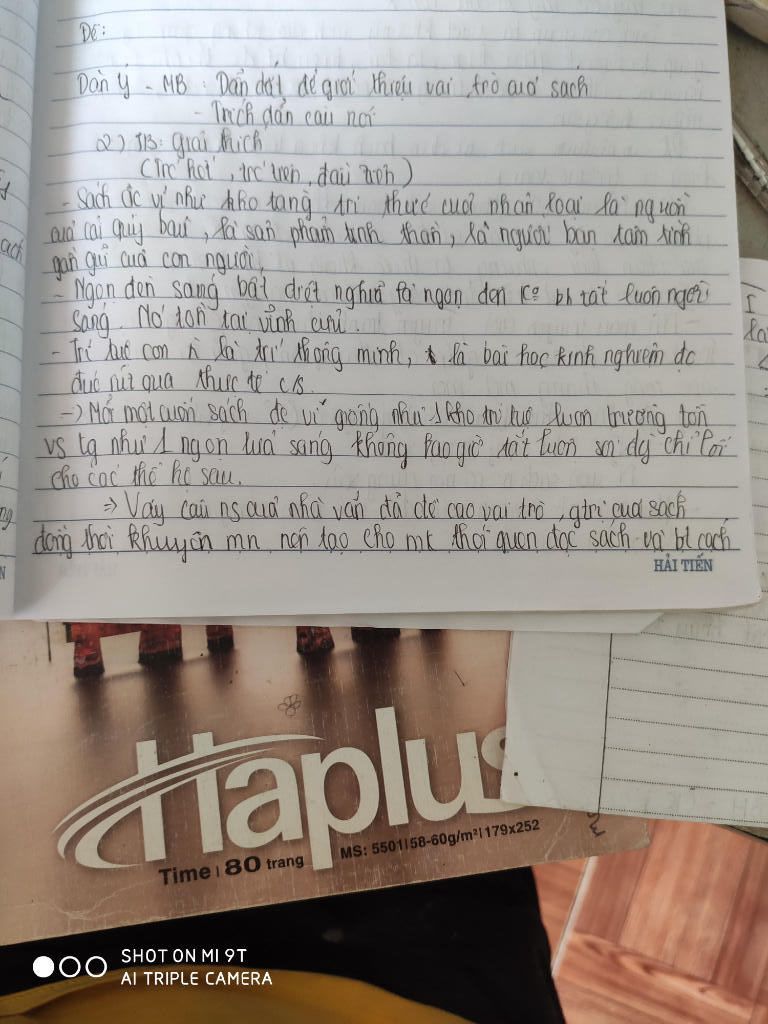 Đề:
Dàn ý - MB: Dẫn dắt để giới thiệu vai trò của sách
- Trích dẫn câu nói
2) TB: giải thích
(trc hết, trc tiên, đầu tiên)
- Sách đc ví như kho tàng tri thức của nhân loại là nguồn
của cải quý báu, là sản phẩm tinh thần, là người bạn tâm tình
gần gũi của con người,
- Ngọn đèn sáng bất diệt nghĩa là ngọn đèn ko bh tắt luôn ngời
sáng. Nó tồn tại vĩnh cửu.
- Trí tuệ con n là trí thông minh, là bài học kinh nghiệm đc
đúc rút qua thực tế c/s.
-> Mỗi một cuốn sách đc ví giống như 1 kho trí tuệ luôn trường tồn
vs tg như 1 ngọn lửa sáng không bao giờ tắt luôn soi chỉ lối
cho các thế hệ sau.
=> Vậy câu ns của nhà văn đã đề cao vai trò, gtrị của sách
đồng thời khuyên mn nên tạo cho mk thói quen đọc sách và bt cách
HẢI TIẾN
Haplus
Time | 80 trang
MS: 5501 | 58-60g/m² | 179x252
SHOT ON MI 9T
AI TRIPLE CAMERA